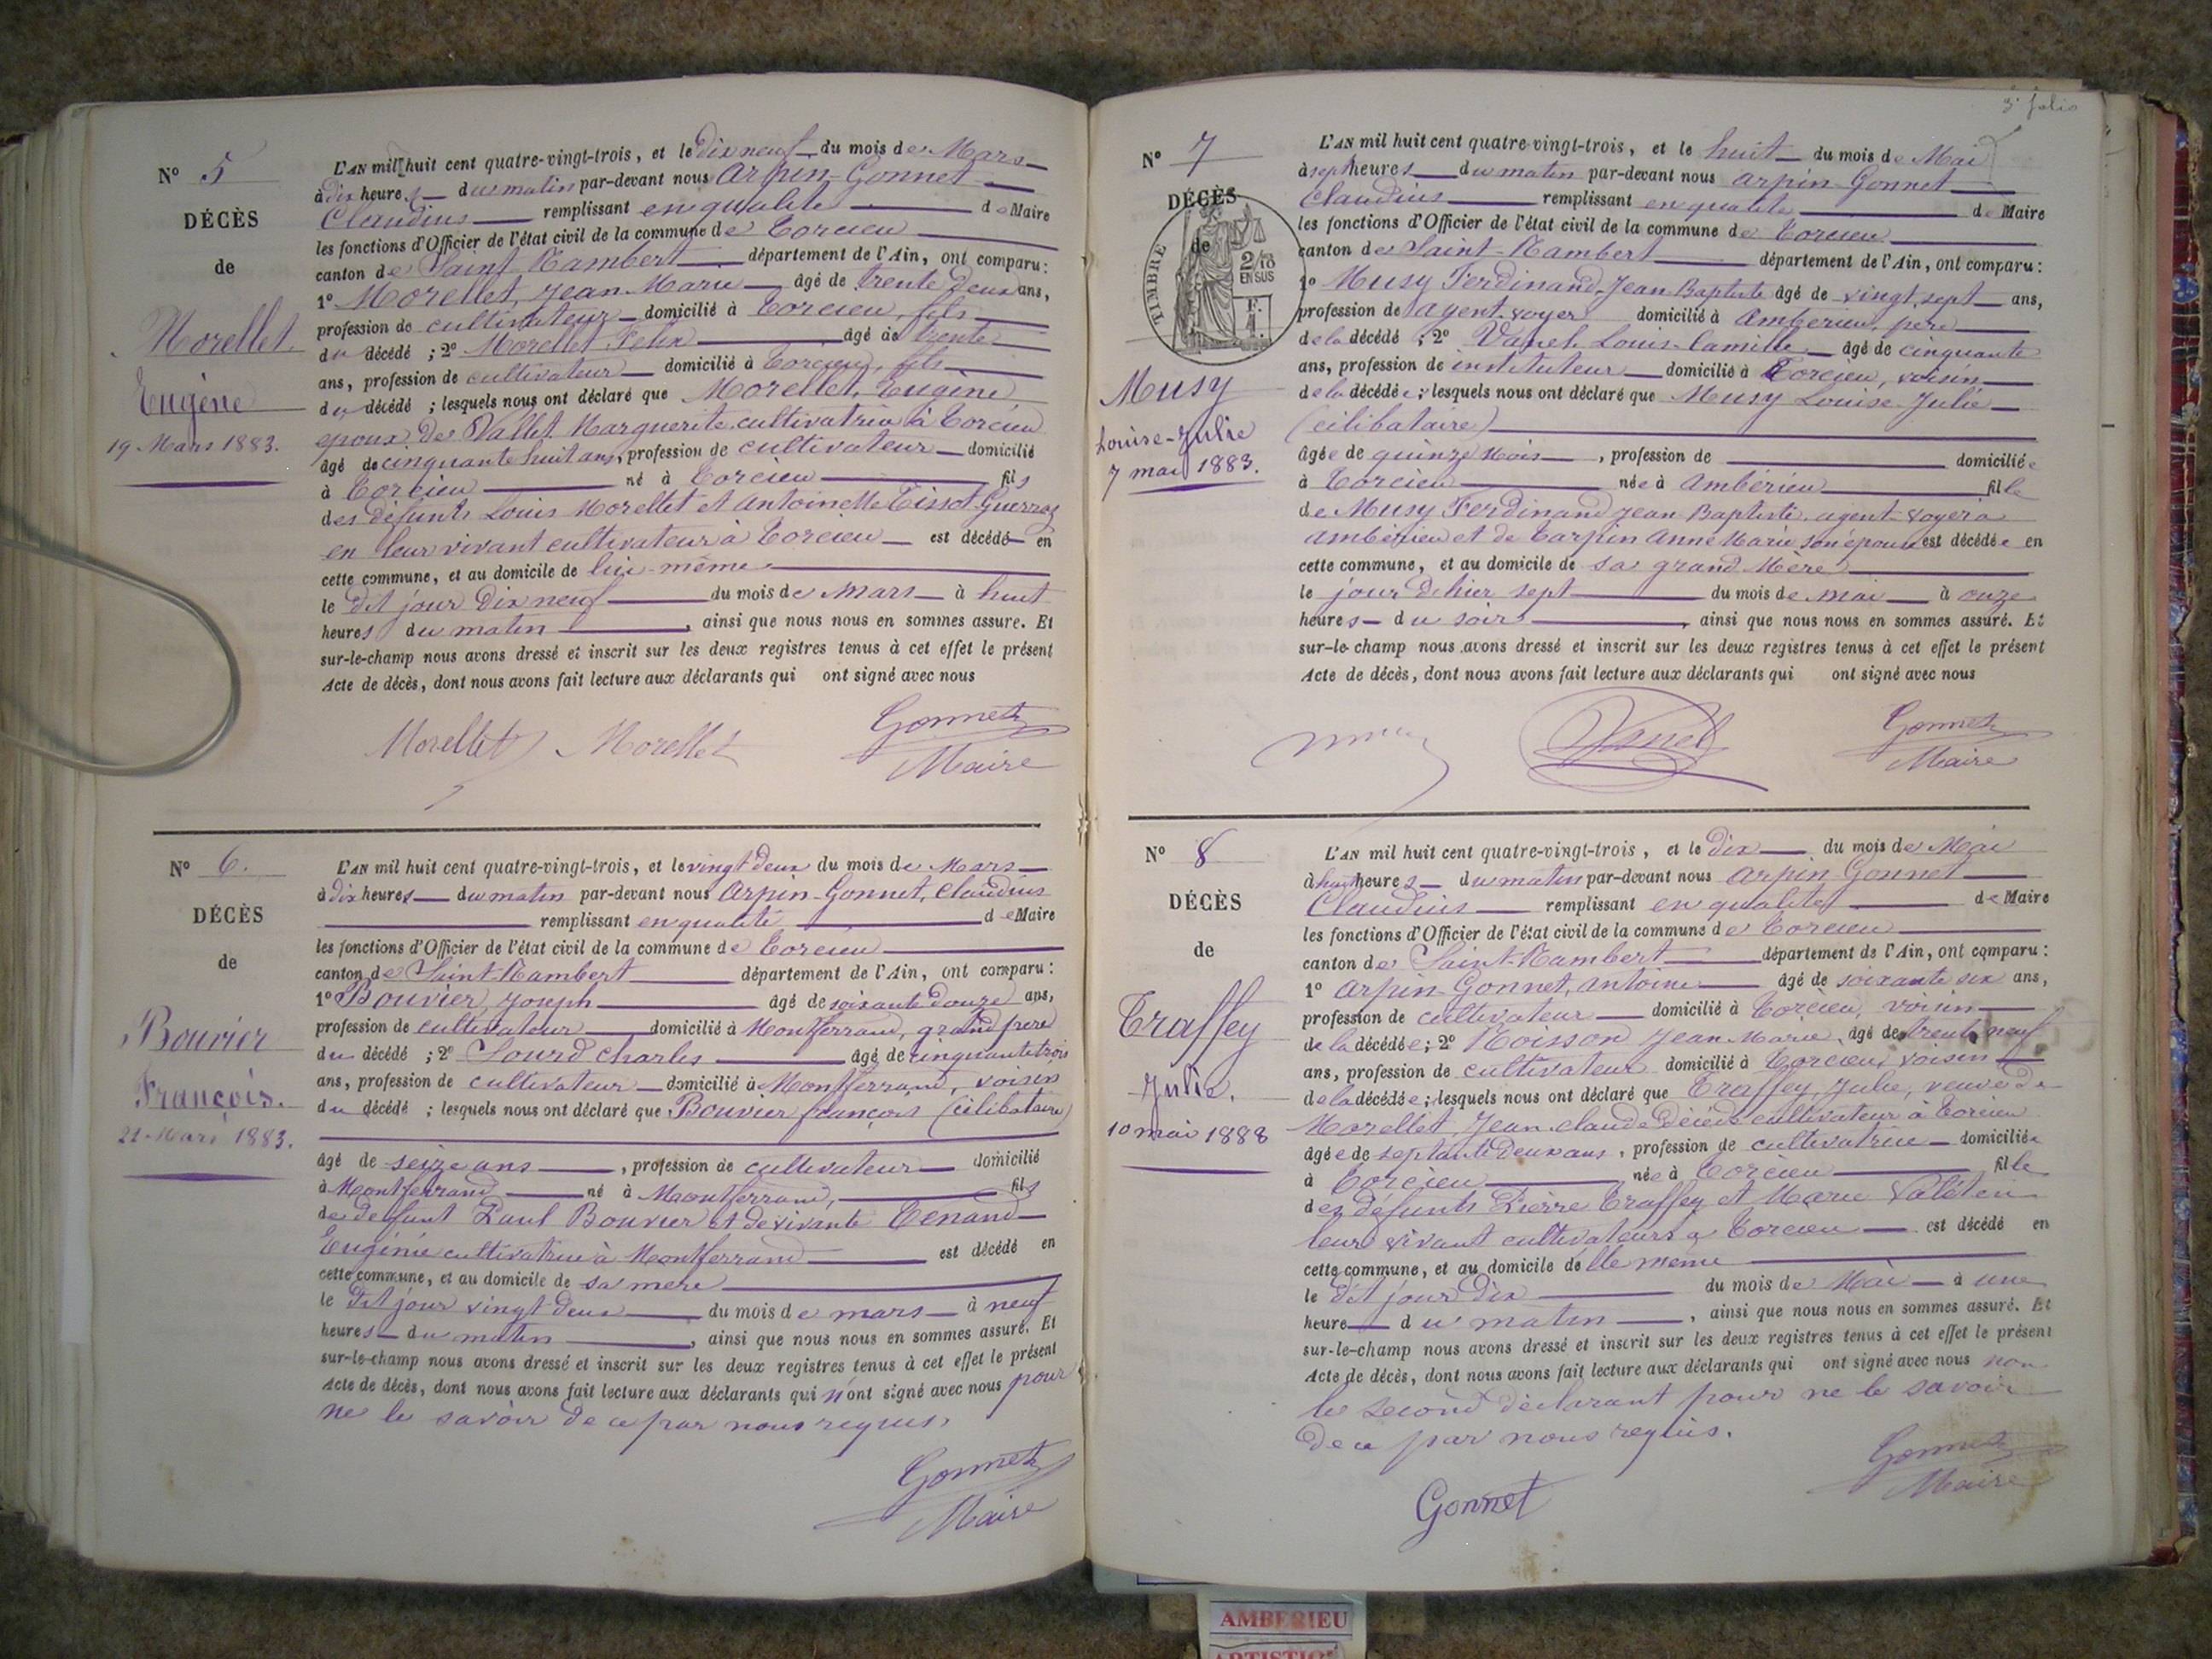 N° 5
DÉCÈS
de
Morellet
Eugène
19 Mars 1883.
L'AN mil huit cent quatre-vingt-trois, et le dix neuf du mois de Mars
à dix heures du matin par-devant nous Arpin-Gonnet
Claudius remplissant en qualité de Maire
les fonctions d'Officier de l'état civil de la commune de Torcieu
canton de Saint-Rambert département de l'Ain, ont comparu :
1° Morellet, Jean-Marie âgé de trente deux ans,
profession de cultivateur domicilié à Torcieu, fils
du décédé ; 2° Morellet Felix âgé de trente
ans, profession de cultivateur domicilié à Torcieu, fils
du décédé ; lesquels nous ont déclaré que Morellet, Eugène
époux de Vallet Marguerite cultivatrice à Torcieu
âgé de cinquante huit ans, profession de cultivateur domicilié
à Torcieu né à Torcieu fils
des défunts Louis Morellet et Antoinette Tissot-Guerraz
en leur vivant cultivateur à Torcieu est décédé en
cette commune, et au domicile de lui-même
le dit jour dix neuf du mois de mars à huit
heures du matin, ainsi que nous nous en sommes assuré. Et
sur-le-champ nous avons dressé et inscrit sur les deux registres tenus à cet effet le présent
Acte de décès, dont nous avons fait lecture aux déclarants qui ont signé avec nous
Morellet Morellet Gonnet
Maire
N° 6.
DÉCÈS
de
Bouvier
François.
22 Mars 1883.
L'AN mil huit cent quatre-vingt-trois, et le vingt deux du mois de Mars
à dix heures du matin par-devant nous Arpin-Gonnet, Claudius
remplissant en qualité de Maire
les fonctions d'Officier de l'état civil de la commune de Torcieu
canton de Saint-Rambert département de l'Ain, ont comparu :
1° Bouvier, Joseph âgé de soixante douze ans,
profession de cultivateur domicilié à Montferrand, grand père
du décédé ; 2° Lourd Charles âgé de cinquante trois
ans, profession de cultivateur domicilié à Montferrand, voisin
du décédé ; lesquels nous ont déclaré que Bouvier françois (célibataire)
âgé de seize ans, profession de cultivateur domicilié
à Montferrand né à Montferrand, fils
de défunt Paul Bouvier et de vivante Tenand
Eugénie cultivatrice à Montferrand est décédé en
cette commune, et au domicile de sa mère
le dit jour vingt deux du mois de mars à neuf
heures du matin, ainsi que nous nous en sommes assuré. Et
sur-le-champ nous avons dressé et inscrit sur les deux registres tenus à cet effet le présent
Acte de décès, dont nous avons fait lecture aux déclarants qui n'ont signé avec nous pour
ne le savoir de ce par nous requis.
Gonnet
Maire
3e folio
N° 7
DÉCÈS
de
TIMBRE
2/10
EN SUS
F.
1.
Musy
Louise-Julie
7 mai 1883.
L'AN mil huit cent quatre-vingt-trois, et le huit du mois de Mai
à sept heures du matin par-devant nous Arpin-Gonnet
Claudius remplissant en qualité de Maire
les fonctions d'Officier de l'état civil de la commune de Torcieu
canton de Saint-Rambert département de l'Ain, ont comparu :
1° Musy Ferdinand-Jean Baptiste âgé de vingt sept ans,
profession de agent-voyer domicilié à Ambérieu, père
de la décédé ; 2° Vanel Louis-Camille âgé de cinquante
ans, profession de instituteur domicilié à Torcieu, voisin
de la décédée ; lesquels nous ont déclaré que Musy Louise-Julie
(célibataire)
âgée de quinze mois, profession de domiciliée
à Torcieu née à Ambérieu fille
de Musy Ferdinand Jean Baptiste, agent-voyer à
Ambérieu et de Tarpin Anne Marie son épouse est décédée en
cette commune, et au domicile de sa grand Mère
le jour d'hier sept du mois de mai à onze
heures du soir, ainsi que nous nous en sommes assuré. Et
sur-le-champ nous avons dressé et inscrit sur les deux registres tenus à cet effet le présent
Acte de décès, dont nous avons fait lecture aux déclarants qui ont signé avec nous
Vanel Gonnet
Maire
N° 8
DÉCÈS
de
Traffey
Julie.
10 mai 1888
L'AN mil huit cent quatre-vingt-trois, et le dix du mois de Mai
à huit heures du matin par-devant nous Arpin-Gonnet
Claudius remplissant en qualité de Maire
les fonctions d'Officier de l'état civil de la commune de Torcieu
canton de Saint-Rambert département de l'Ain, ont comparu :
1° Arpin-Gonnet, Antoine âgé de soixante six ans,
profession de cultivateur domicilié à Torcieu, voisin
de la décédée ; 2° Roisson Jean Marie, âgé de trente neuf
ans, profession de cultivateur domicilié à Torcieu, voisin
de la décédée ; lesquels nous ont déclaré que Traffey, Julie, veuve de
Morellet, Jean-Claude décédé cultivateur à Torcieu
âgée de septante deux ans, profession de cultivatrice domiciliée
à Torcieu, née à Torcieu fille
des défunts Pierre Traffey et Marie Valet en
leur vivant cultivateurs à Torcieu est décédé en
cette commune, et au domicile d'elle même
le dit jour dix du mois de Mai à une
heure du matin, ainsi que nous nous en sommes assuré. Et
sur-le-champ nous avons dressé et inscrit sur les deux registres tenus à cet effet le présent
Acte de décès, dont nous avons fait lecture aux déclarants qui ont signé avec nous non
le second déclarant pour ne le savoir
de ce par nous requis.
Gonnet
Maire
Gonnet
AMBERIEU